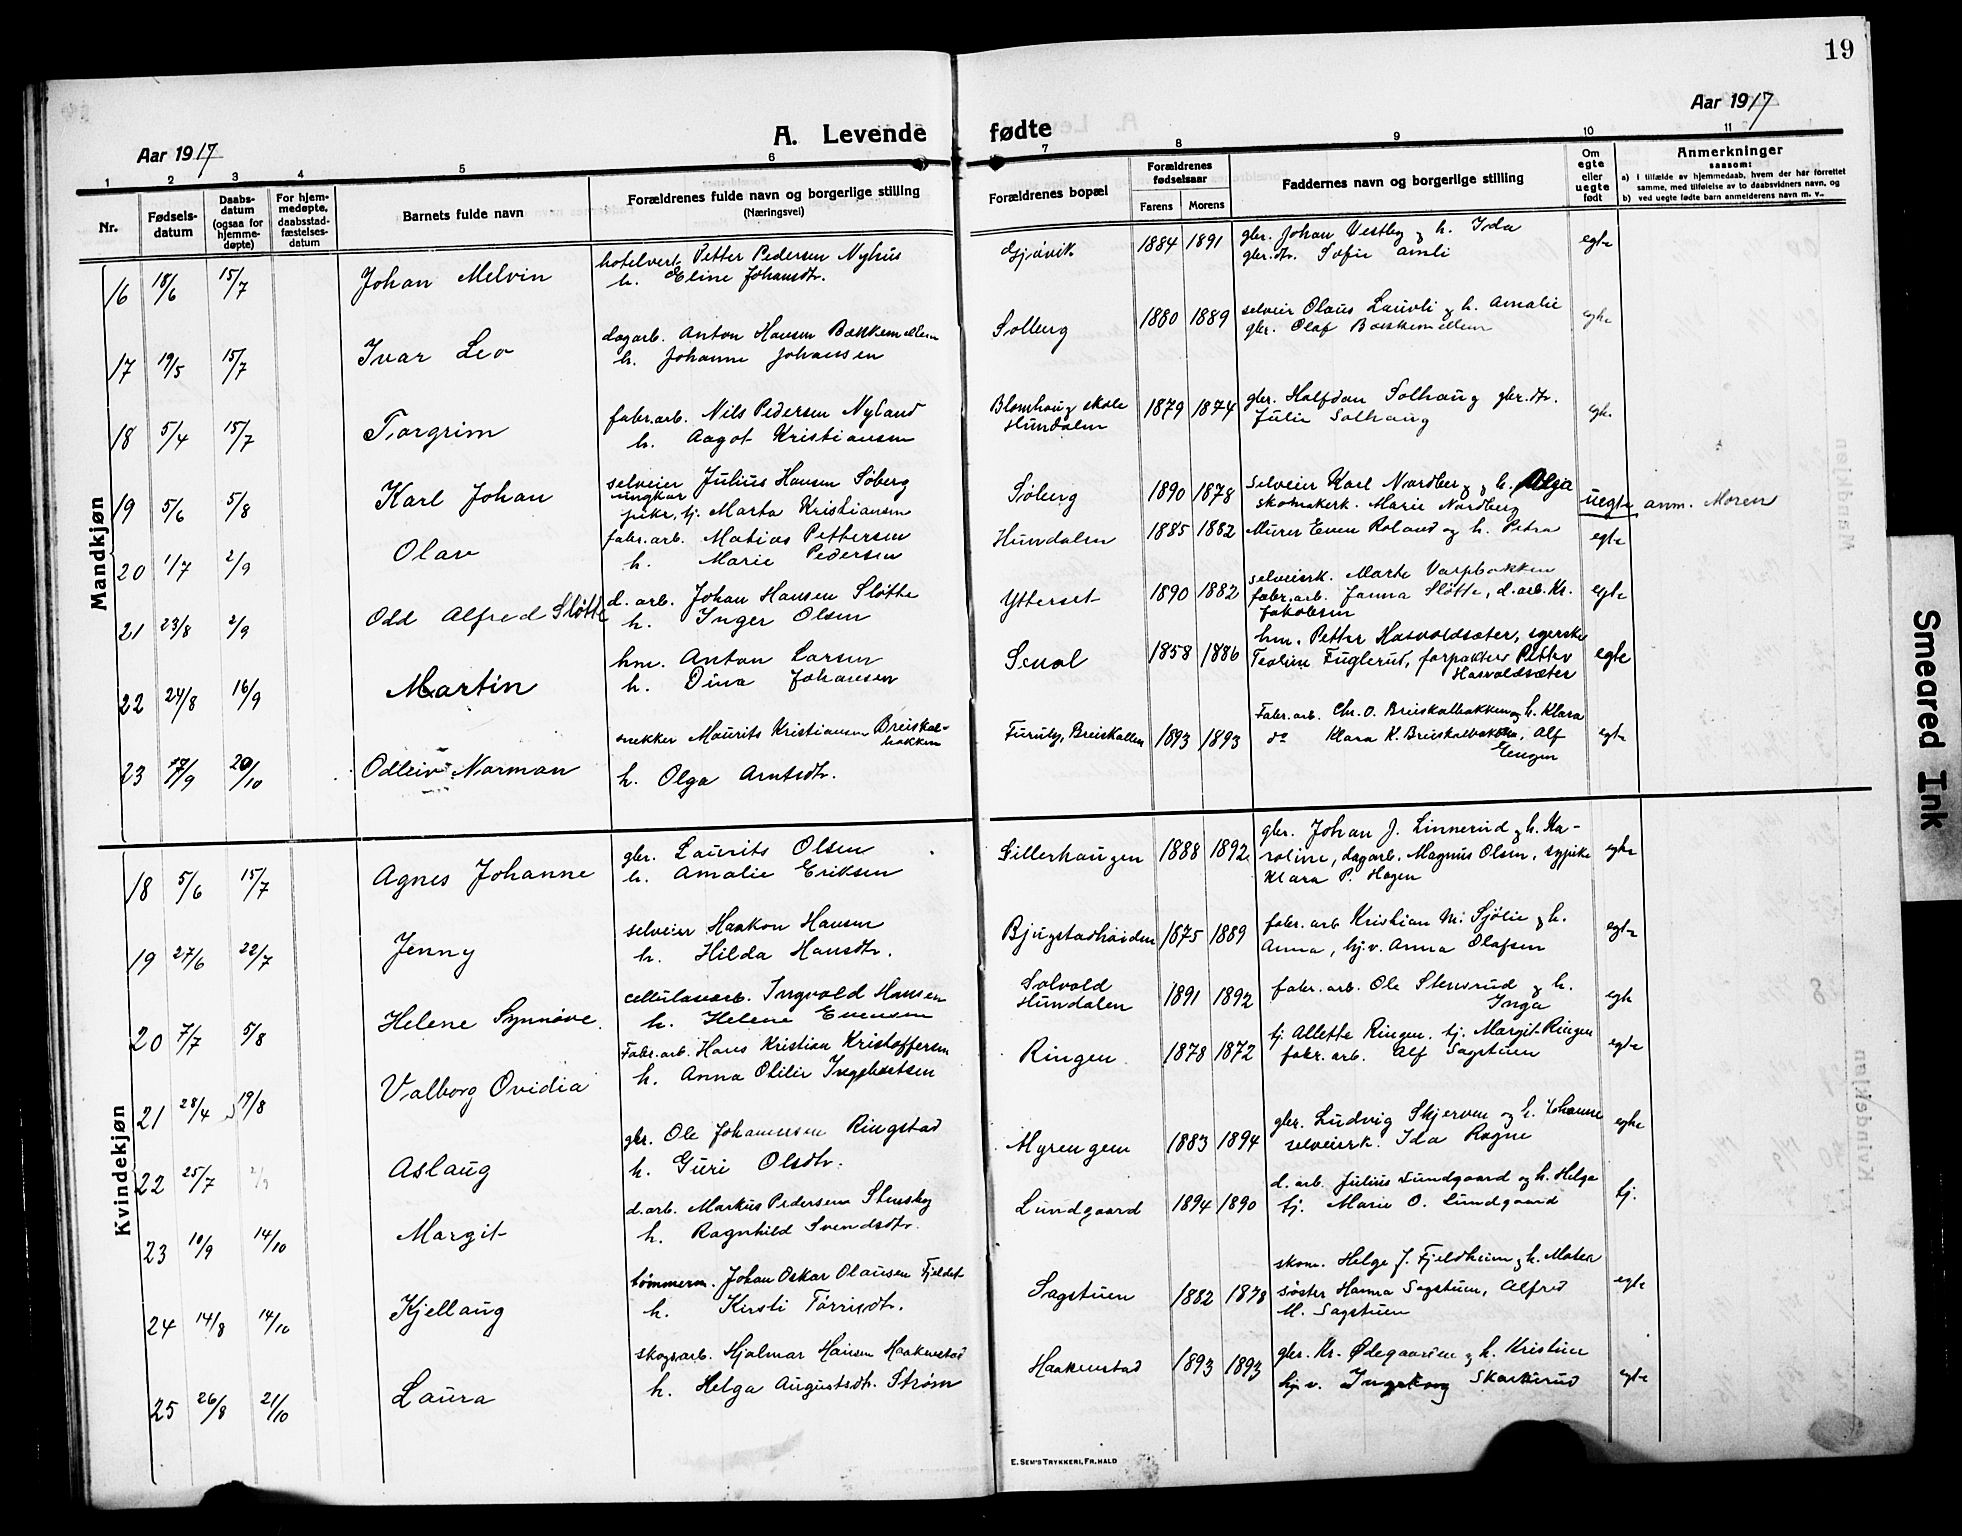 19
Aar 1917
A. Levende fødte
Aar 1917
1 2 3 4 5 6 7 8 9 10 11
Nr.
Fødsels-
datum
Daabs-
datum
(ogsaa for
hjemme-
døpte)
For hjem-
medøpte,
daabsstad-
fæstelses-
datum
Barnets fulde navn
Forældrenes fulde navn og borgerlige stilling
(Næringsvei)
Forældrenes bopæl
Forældrenes
fødselsaar
Farens Morens
Faddernes navn og borgerlige stilling
Om
egte
eller
uegte
født
Anmerkninger
saasom:
a) I tilfælde av hjemmedaab, hvem der har forrettet
samme, med tilføielse av to daabsvidners navn, og
b) ved uegte fødte barn anmelderens navn m. v.
Mandkjøn
16 18/6 15/7 Johan Melvin
hotelvert Petter Pedersen Nyhus
h. Eline Johansdtr.
Gjøvik 1884 1891
gbr. Johan Vestby og h. Ida
gbr.dtr. Sofie Amli
egte
17 19/5 15/7 Ivar Leo
dagarb. Anton Hansen Bækkemellem
h. Johanne Johansen
Solberg 1880 1889
selveier Olaus Lauvli og h. Amalie
gbr. Olaf Bækkemellem
egte
18 5/4 15/7 Torgrim
fabr.arb. Nils Pedersen Nyland
h. Aagot Kristiansen
Blomhaug skole
Hundalen
1879 1874
gbr. Halfdan Solhaug gbr.dtr.
Julie Solhaug
egte
19 5/6 5/8 Karl Johan
selveier Julius Hansen Søberg
ungkar
pike, tj. Marta Kristiansen
Søberg 1890 1878
selveier Karl Nordberg og h. Olga
skomakerk. Marie Nordberg
uegte anm. Moren
20 1/7 2/9 Olav
fabr.arb. Matias Pettersen
h. Marie Pedersen
Hundalen 1885 1882
Murer Even Roland og h. Petra
egte
21 23/8 2/9 Odd Alfred Sløtte
d. arb. Johan Hansen Sløtte
h. Inger Olsen
Ytterset 1890 1882
selveierk. Marte Varpbakken
fabr.arb. Janna Sløtte, d.arb. Kr.
Jakobsen
egte
22 24/8 16/9 Martin
hm. Anton Larsen
h. Dina Johansen
1858 1886
hm. Petter Hasvoldsæter, syerske
Teoline Fuglerud, forpakter Petter
Hasvoldsæter
egte
23 20/10 Odleiv Norman
snekker Maurits Kristiansen Breiskal-
bakken
h. Olga Arntsdtr.
Furuly, Breiskallen 1893 1893
Fabr.arb. Chr. O. Breiskalbakken og h. Klara
do Klara K. Breiskalbakken, Alf
Engen
egte
Kvindekjøn
18 5/6 15/7 Agnes Johanne
gbr. Laurits Olsen
h. Amalie Eriksen
Sillerhaugen 1888 1892
gbr. Johan J. Linnerud og h. Ka-
roline, dagarb. Magnus Olsen, sypike
Klara P. Hagen
egte
19 27/6 22/7 Jenny
selveier Haakon Hansen
h. Hilda Hansdtr.
Bjugstadheiden 1875 1889
fabr.arb Kristian M. Sjølie og h.
Anna, hj.v. Anna Olafsen
egte
20 7/7 5/8 Helene Synnøve.
cellulosearb. Ingvald Hansen
h. Helene Evensen
Solvold
Hundalen
1891 1892
fabr.arb. Ole Stensrud og h.
Inga
egte
21 28/4 19/8 Valborg Ovidia
Fabr.arb. Hans Kristian Kristoffersen
h. Anna Otilie Ingebertsen
Ringen 1878 1872
tj. Allette Ringen. tj. Margit Ringen
fabr.arb. Alf Sagstuen
egte
22 25/7 2/9 Aslaug
gbr. Ole Johannessen Ringstad
h. Guri Olsdtr.
Myrengen 1883 1894
gbr. Ludvig Skjerven og h. Johanne
selveierk. Ida Rogne
egte
23 10/9 14/10 Margit
d.arb. Markus Pedersen Stensby
h. Ragnhild Svendsdtr.
Lundgaard 1894 1890
d. arb. Julius Lundgaard og h. Helga
tj. Marie O. Lundgaard
tj.
24 14/8 14/10 Kjellaug
tømmerm. Johan Oskar Olausen Fjeldet
h. Kirsti Tørrisdtr.
Sagstuen 1882 1878
skom. Helge J. Fjeldheim og h. Matea
søster Hanna Sagstuen, Alfred
M. Sagstuen
egte
25 26/8 21/10 Laura
skogsarb. Hjalmar Hansen Haakenstad
h. Helga Augustsdtr. Strøm
Haakenstad 1893 1893
gbr. Kr. Ødegaarden og h. Kristine
hj.v. Ingeborg Skarterud
egte
E. SEM'S TRYKKERI, FR. HALD
Smeared Ink